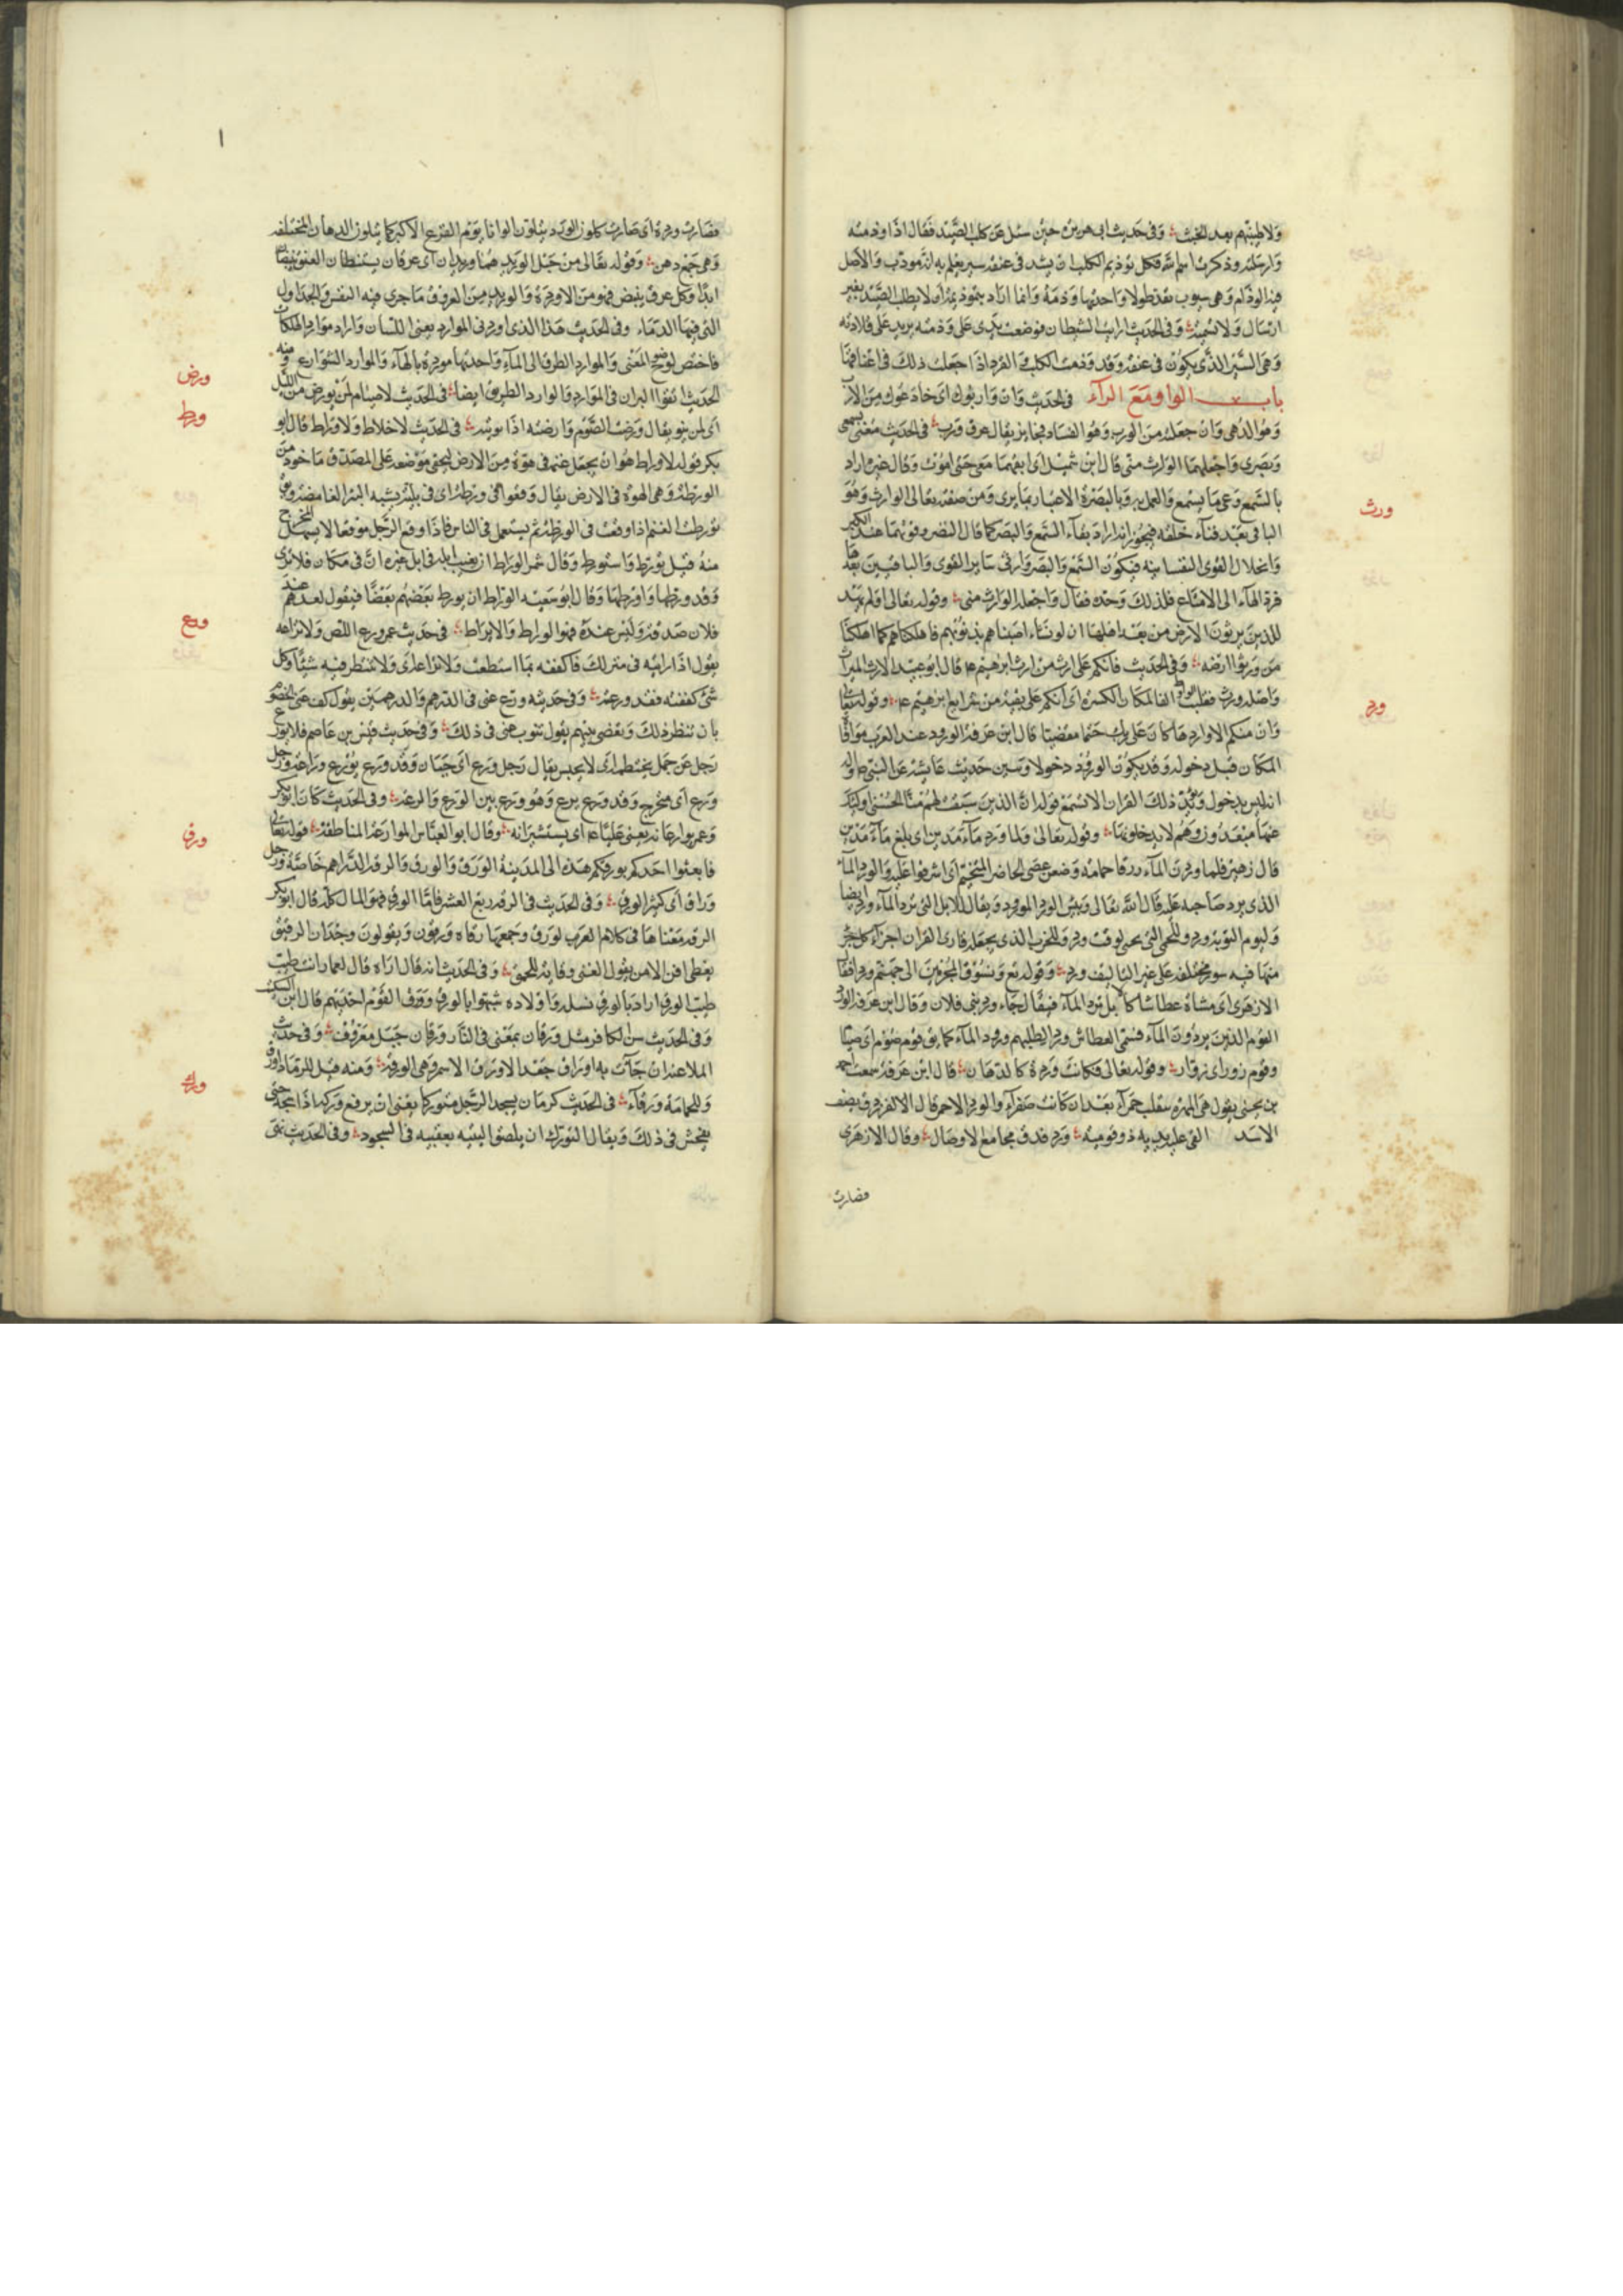 ولاطيبنهم بعد الخبث وفى حديث ابى هريرة حين سئل عن كلب الصيد فقال اذا وذمته
وارسلته وذكرت اسم الله فكل توذيم الكلب ان يشد فى عنقه سير يعلم به انه مودب والاصل
فيه الوذام وهى سيور تقد طولا واحدتها وذمة وانما اراد بتوذيمه ان لا يطلب الصيد بغير
ارسال ولا تسمية وفى الحديث اريت الشيطان فوضعت يدى على وذمته يريد على قلادته
وهى السير الذى يكون فى عنقه وقد وذمت الكلب القرد اذا جعلت ذلك فى اعناقها
باب الواو مع الراء فى الحديث وان واربوك اى خادعوك من الارب
وهو الدهى وان جعلته من الورب وهو الفساد فجائز يقال عرق ورب فى الحديث متعنى بسمعى
وبصرى واجعلهما الوارث منى قال ابن شميل اى ابقهما معى حتى اموت وقال غيره اراد
بالسمع وعى ما يسمع والعمل به وبالبصر الاعتبار بما يرى ومن صفته تعالى الوارث وهو
الباقى بعد فناء خلقه فيجوز انه اراد بقاء السمع والبصر كما قال النضر وقوتهما عند الكبر
وانحلال القوى النفسانية فيكون السمع والبصر وارثى سائر القوى والباقيين بعدها
فرد الهاء الى الامتاع فلذلك وحده فقال واجعله الوارث منى وقوله تعالى اولم يهد
للذين يرثون الارض من بعد اهلها ان لو نشاء اصبناهم بذنوبهم فاهلكناهم كما اهلكنا
من ورثوا ارضه وفى الحديث فانكم على ارث من ارث ابرهيم قال ابو عبيد الارث الميراث
واصله ورث فقلبت الواو الفا لمكان الكسرة اى انكم على بقية من شرايع ابرهيم وقوله تعالى
وان منكم الا واردها كان على ربك حتما مقضيا قال ابن عرفة الورود عند العرب موافاة
المكان قبل دخوله وقد يكون الورود دخولا وسين حديث عايشة عن النبى
انه ليس بدخول ويؤيد ذلك القران الا تسمع قوله ان الذين سبقت لهم منا الحسنى اولئك
عنها مبعدون وهم لا يدخلونها وقوله تعالى ولما ورد ماء مدين اى بلغ ماء مدين
قال زهير فلما وردن الماء زرقا جمامه وضعن عصى الحاضر المتخيم اى اشرفوا عليه والورد الماء
الذى يرد صاحبه عليه قال الله تعالى وبئس الورد المورود ويقال للابل التى ترد الماء ورد ايضا
وليوم النوبة ورد وللحمى التى تجى لوقت ورد وللحزب الذى يجعله قارى القران اجزاء كل جزء
منها فيه سور مختلفة على غير التاليف ورد وقوله تع ونسوق المجرمين الى جهنم وردا قال
الازهرى اى مشاة عطاشا كالابل ترد الماء فيقال جاء ورد بنى فلان وقال ابن عرفة الورد
القوم الذين يردون الماء فسمى العطاش وردا لطلبهم ورود الماء كما يق قوم صوم اى صيام
وقوم زور اى زوار وقوله تعالى فكانت وردة كالدهان قال ابن عرفة سمعت احمد
بن يحيى يقول هى المهرة تنقلب حمراء بعد ان كانت صفراء والورد الاحمر قال الفرزدق يصف
الاسد القى عليه يديه ذو قومية ورد فدق مجامع الاوصال وقال الازهرى
فصارت
ورث
ورد
فصارت وردة اى صارت كلون الورد يتلون الوانا يوم الفزع الاكبر كما يتلون الدهان المختلفة
وهى جمع دهن وقوله تعالى من حبل الوريد هما وريدان اى عرقان يستبطان العنق ينبضان
ابدا وكل عرق ينبض فهو من الاوردة والوريد من العروق ما جرى فيه النفس والجداول
التى فيها الدماء وفى الحديث هذا الذى اوردنى الموارد يعنى اللسان واراد موارد الهلكات
فاختصر لوضوح المعنى والموارد الطرق الى الماء واحدتها موردة بالهاء والموارد الشوارع ومنه
الحديث اتقوا البراز فى الموارد والوارد الطريق ايضا فى الحديث لا صيام لمن لم يورض من الليل
اى لمن لم ينو يقال ورضت الصوم وارضته اذا نويته فى الحديث لا خلاط ولا وراط قال ابو
بكر قوله لا وراط هو ان يجعل غنمه فى هوة من الارض ليخفى موضعه على المصدق ماخوذ من
الورطة وهى الهوة فى الارض يقال وقعوا فى ورطة اى فى بلية تشبه البئر الغامضة ويق
تورطت الغنم اذا وقعت فى الورطة ثم يستعمل فى الناس فاذا وقع الرجل موقعا لا يسهل المخرج
منه قيل تورط واستورط وقال شمر الوراط ان يغيب ابله فى ابل غيره او فى مكان فلا ترى
وقد ورطها واورطها وقال ابو سعيد الوراط ان يورط بعضهم بعضا فيقول احدهم عند
فلان صدقة وليس عنده فهو الوراط والايراط فى حديث عمر ورع اللص ولا تراعه
يقول اذا رايته فى منزلك فاكففه بما استطعت ولا تراع اى ولا تنتظر فيه شيئا وكل
شئ كففته فقد ورعته وفى حديثه ورع عنى فى الدرهم والدرهمين يقول كف عنى الخصوم
بان تنظر ذلك وتقضى بينهم يقول تنوب عنى فى ذلك وفى حديث قيس بن عاصم فلا يورع
رجل عن جمل يختطمه اى لا يحبس يقال رجل ورع اى جبان وقد ورع يورع وراعة ورجل
ورع اى متحرج وقد ورع يرع وهو ورع بين الورع والرعة وفى الحديث كان ابو بكر
وعمر يوارعانه يعنى عليا اى يستشيرانه وقال ابو العباس الموارعة المناطقة قوله تعالى
فابعثوا احدكم بورقكم هذه الى المدينة الورق والورق والرقة الدراهم خاصة ورجل
وراق اى كثير الورق وفى الحديث فى الرقة ربع العشر فاما الورق فهو المال كله قال ابو بكر
الرقة معناها فى كلام العرب الورق وجمعها رقاة ورقون ويقولون وجدان الرقين
يغطى افن الافين يقول الغنى وقاية للحمق وفى الحديث انه قال اراه قال لعمار انت طيب
طيب الورق اراد بالورق نسله واولاده شبهوا بالورق وورق القوم احداثهم قال ابن السكيت
وفى الحديث سن الكافر مثل ورقان بمعنى فى النار ورقان جبل معروف وفى حديث
الملاعنة ان جاءت به اوراق جعدا الاوراق الاسمر وهى الورقة ومنه قيل للرماد اورق
وللحمامة ورقاء فى الحديث كره ان يسجد الرجل متوركا يعنى ان يرفع وركه اذا سجد حتى
يفحش فى ذلك ويقال التورك ان يلصق اليتيه بعقبيه فى السجود وفى الحديث نهى
ورض
ورط
ورع
ورق
ورك